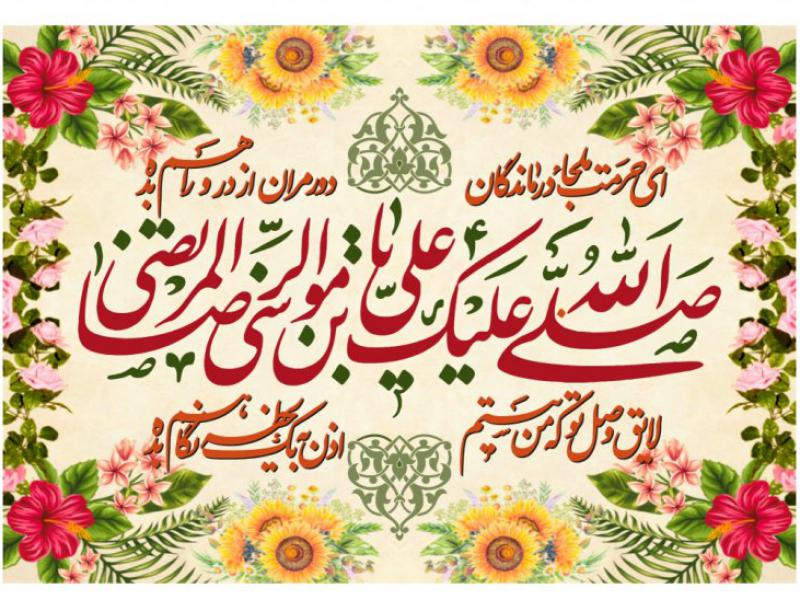 ای حرمت ملجأ درماندگان دور مران از در و راهم بده
صلی الله علیک یا علی بن موسی الرضا المرتضی
لایق وصل تو که من نیستم اذن به یک لحظه نگاهم بده